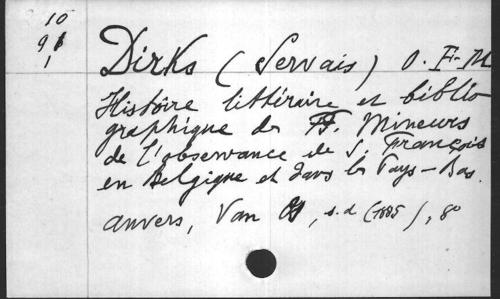 10
9
1
Dirks (Servais) O. F. M
Histoire littéraire et biblio
graphique des FF. Mineurs
de l'observance de S. François
en Belgique et dans les Pays-Bas.
Anvers, Van, s.d (1885), 8°